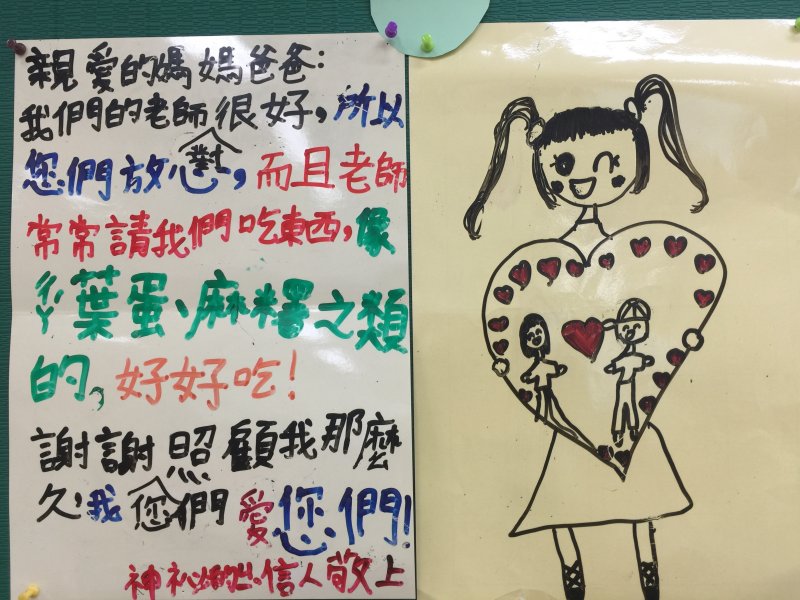 親愛的媽媽爸爸:
我們的老師對很好,所以
您們放心,而且老師
常常請我們吃東西,像
ㄔㄚˊ葉蛋、麻糬之類
的,好好吃!
謝謝照顧我那麼
久!我您們愛您們!
神祕的出信人敬上